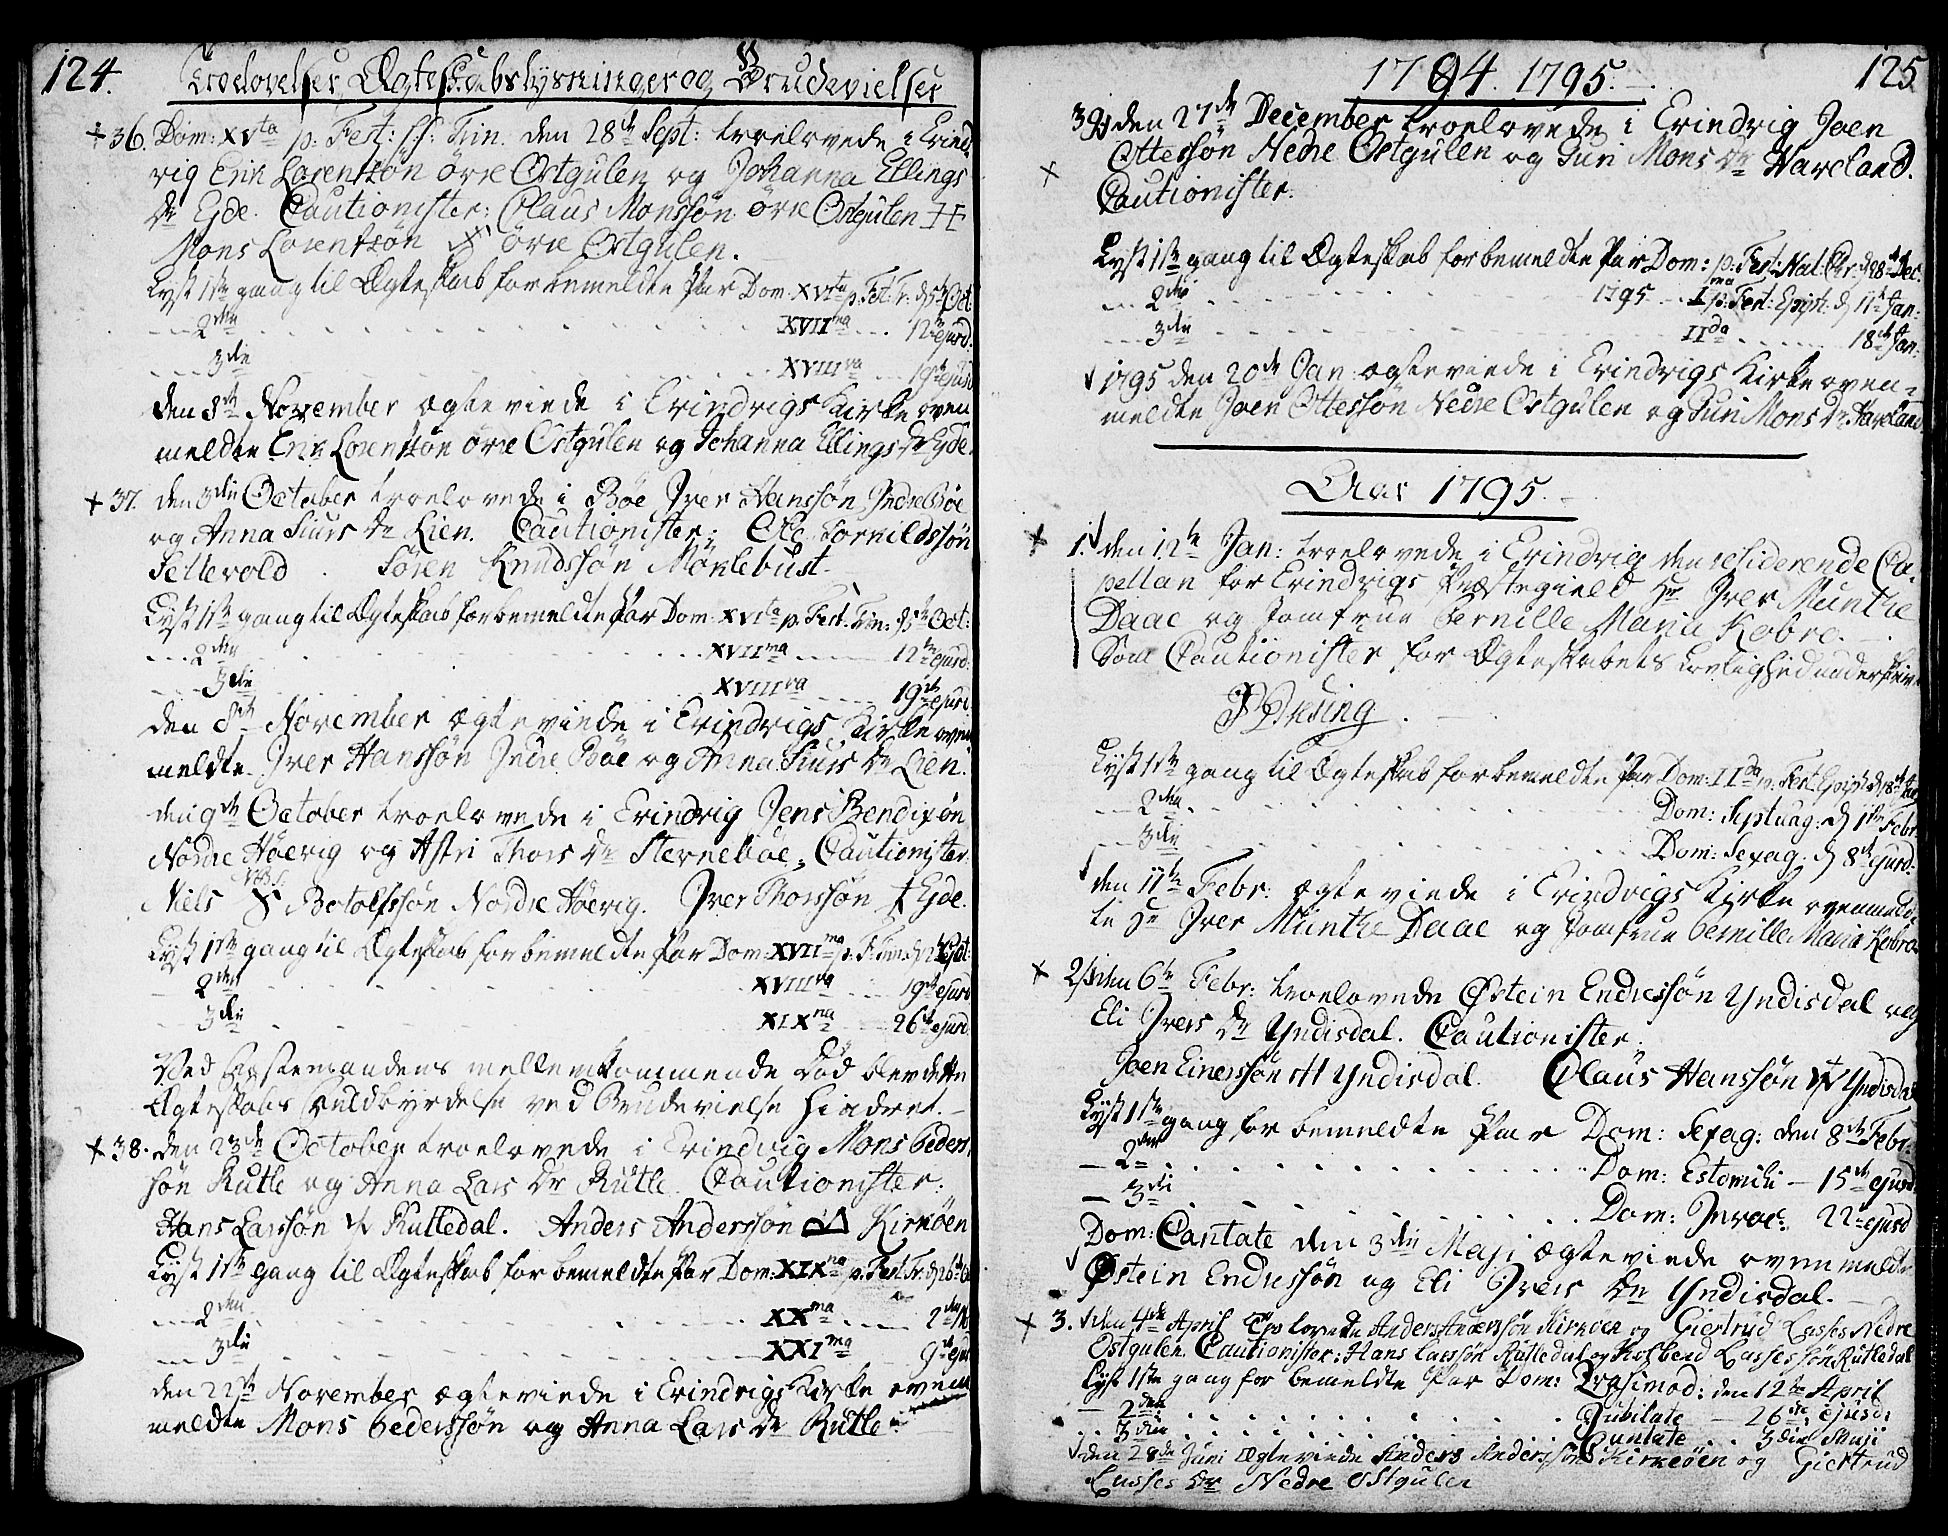 124. Troelovelser, Ægteskabslysninger og Brudevielser
+ 36. Dom: XVta p: Fest: SS: Trin. den 28de Sept: troelovede i Evind-
vig Erik Lorentzøn övre Ostgulen og Johanna Ellings
Dr Eyde. Cautionister: Olaus Monssøn övre Ostgulen
Mons Lorentzøn övre Ostgulen.
Lyst 1ste gang til Ægteskab for bemeldte Par Dom: XVIta p: Fest: Tr: d 5te Oct:
2den XVIIma 12te ejusd:
3die XVIIIva 19de ejusd
den 8de November ægteviede i Evindvigs Kirke oven
meldte Erik Lorentzøn övre Ostgulen og Johanna Ellings Dr Eyde.
+ 37. den 3die October troelovede i Böe Iver Hanssøn Indre Böe
og Anna Siurs Dr Lien. Cautionister: Ole Tornildssøn
Settevold. Sören Knudssøn Möklebust.
Lyst 1ste gang til Ægteskab for bemeldte Par Dom: XVIta p: Fest: Trin: d 5te Oct:
2den XVIIma 12te ejusd:
3die XVIIIva 19de ejusd
den 8de November ægteviede i Evindvigs Kirke oven
meldte Iver Hanssøn Indre Böe og Anna Siurs Dr Lien.
den 9de October troelovede i Evindvig Jens Bendixøn
Nordre Höevig og Astri Thors Dr Sterneböe; Cautionister
Niels Botolfssøn Nordre Höevig. Iver Thorssøn Eyde.
Lyst 1ste gang til Ægteskab for bemeldte Par Dom: XVIIma p: F: Trin: d 12te Oct:
2den XVIIIva 19de ejusd
3die XIXna 26de ejusd
Ved Fæstemandens mellemkommende Död blev dette
Ægteskabs Fuldbyrdelse ved Brudevielse hindret.
+ 38. den 23de October troelovede i Evindvig Mons Peders
søn Rutle og Anna Lars Dr Rutle. Cautionister:
Hans Larssøn Rutledal. Anders Anderssøn Kirköen
Lyst 1ste gang til Ægteskab for bemeldte Par Dom: XIXna p: Fest: Tr: d 26de
2den XXma 2den
3die XXIma 9de ejusd
den 22de November ægteviede i Evindvigs Kirke oven
meldte Mons Pederssøn og Anna Lars Dr Rutle.
1794. 1795. 125
39 den 27de December troelovede i Evindvig Joen
Ottessøn Nedre Ostgulen og Guri Mons Dr Haveland.
Cautionister.
Lyst 1ste gang til Ægteskab for bemeldte Par Dom: p: Fest: Nat: Chr: d 28de Dec:
2den 1795 Ima p: Fest: Epiph: d 11te Jan:
3die IIda 18de Jan:
1795 den 20de Jan: ægteviede i Evindvigs Kirke oven-
meldte Joen Ottessøn Nedre Ostgulen og Guri Mons Dr Haveland
Aar 1795.
+ 1. den 12te Jan: troelovede i Evindvig den residerende Ca-
pellan for Evindvigs Præstegield Hr Iver Munthe
Daae og Jomfrue Pernille Maria Kobro.
Som Cautionister for Ægteskabets Lovlighed underskriver
Lyst 1ste gang til Ægteskab for bemeldte Par Dom: IIda p: Fest: Epiph: d 18de Jan
2den Dom: Septuag: d 1ste Febr:
3die Dom: Sexag: d 8de ejusd:
den 11te Febr: ægteviede i Evindvigs Kirke ovenmeld-
te Hr Iver Munthe Daae og Jomfrue Pernille Maria Kobro
+ 2. den 6te Febr: troelovede Østein Endressøn Yndisdal og
Eli Ivers Dr Yndisdal. Cautionister.
Joen Einerssøn Yndisdal. Olaus Hanssøn Yndisdal
Lyst 1ste gang for bemeldte Par Dom: Sexag: den 8de Febr:
2den Dom: Estomihi - 15de ejusd:
3die Dom: Invoc: 22de ejusd
Dom: Cantate den 3die Maji ægteviede ovenmeldte
Østein Endressøn og Eli Ivers Dr Yndisdal.
+ 3. den 4de April Troelovede Anders Anderssøn Kirköen og Giertrud Lasses Nedre
Ostgulen. Cautionister: Hans Larssøn Rutledal og Kolbend Lassessøn Rutledal
Lyst 1ste gang for bemeldte Par Dom: Qvasimod: den 12te April
2den Jubilate - 26de ejusd:
3die Cantate 3die Maji
den 28de Juni Ægteviede Anders Anderssøn Kirkeöen og Giertrud
Lasses Dr Nedre Ostgulen